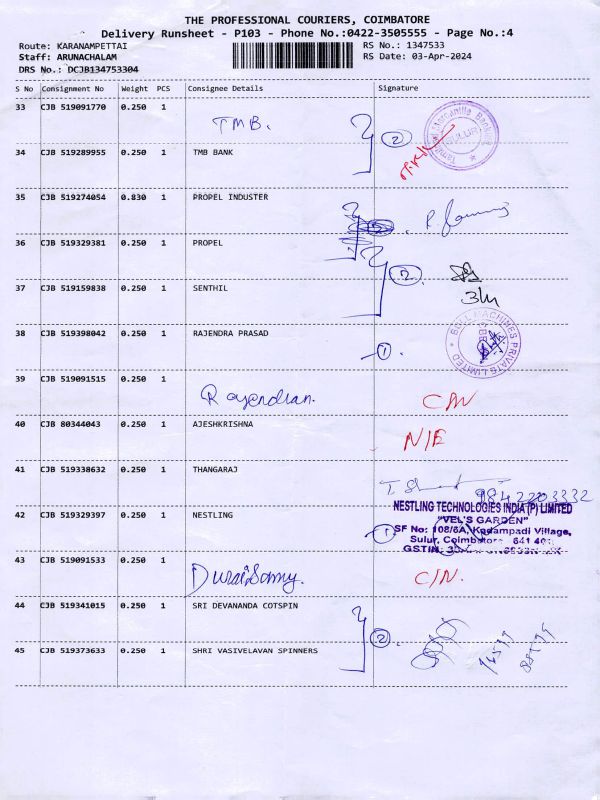 THE PROFESSIONAL COURIERS, COIMBATORE
Delivery Runsheet - P103 - Phone No.:0422-3505555 - Page No.:4
Route: KARANAMPETTAI RS No.: 1347533
Staff: ARUNACHALAM RS Date: 03-Apr-2024
DRS No.: DCJB134753304
S No Consignment No Weight PCS Consignee Details Signature
33 CJB 519091770 0.250 1 TMB.
34 CJB 519289955 0.250 1 TMB BANK
2
35 CJB 519274054 0.830 1 PROPEL INDUSTER
36 CJB 519329381 0.250 1 PROPEL
2
37 CJB 519159838 0.250 1 SENTHIL
38 CJB 519398042 0.250 1 RAJENDRA PRASAD
1
BULL MACHINES PRIVATE LIMITED
39 CJB 519091515 0.250 1 Rajendran.
40 CJB 80344043 0.250 1 AJESHKRISHNA N/E
41 CJB 519338632 0.250 1 THANGARAJ
9842203332
42 CJB 519329397 0.250 1 NESTLING
NESTLING TECHNOLOGIES INDIA (P) LIMITED
"VEL'S GARDEN"
SF No: 108/6A, Kadampadi Village,
Sulur, Coimbatore 641 401
GSTIN:
1
43 CJB 519091533 0.250 1 DuraiSamy. C/N.
44 CJB 519341015 0.250 1 SRI DEVANANDA COTSPIN
2
45 CJB 519373633 0.250 1 SHRI VASIVELAVAN SPINNERS